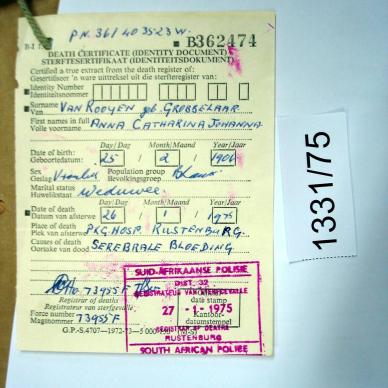 P.N. 361/403523W.
B362474
DEATH CERTIFICATE (IDENTITY DOCUMENT)
STERFTESERTIFIKAAT (IDENTITEITSDOKUMENT)
Certified a true extract from the death register of:
Gesertifiseer 'n ware uittreksel uit die sterfteregister van:
Identity Number
Identiteitsnommer
Surname
Van
VAN ROOYEN geb. GROBBELAAR
First names in full
Volle voorname
ANNA CATHARINA JOHANNA
Day/Dag Month/Maand Year/Jaar
Date of birth:
Geboortedatum:
25 2 1906
Sex
Geslag
Vroulik
Population group
Bevolkingsgroep
Blank
Marital status
Huwelikstaat
Weduwee
Day/Dag Month/Maand Year/Jaar
Date of death
Datum van afsterwe
26 1 1975
Place of death
Plek van afsterwe
P.K.G. HOSP. RUSTENBURG.
Causes of death
Oorsake van dood
SEREBRALE BLOEDING
SUID-AFRIKAANSE POLISIE
DIST. 32
REGISTRATEUR VAN STERFGEVALLE
date stamp
27 -1- 1975
Kantoor-
datumstempel
REGISTRAR OF DEATHS
RUSTENBURG
SOUTH AFRICAN POLICE
73955F
Registrar of deaths
Registrateur van sterfgevalle
Force number
Magsnommer
73955F
G.P.-S.4707—1972-73—5 000
1331/75